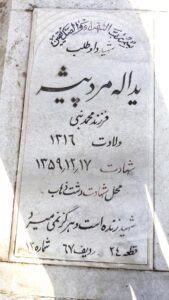 شهید داوطلب
یداله مردپیشه
فرزند محمد نبی
ولادت ۱۳۱۶
شهادت ۱۳۵۹,۱۲,۱۷
محل شهادت دشت ذهاب
شهید زنده است و هرگز نمی میرد
قطعه ۲۴ ردیف ۶۷ شماره ۱۳